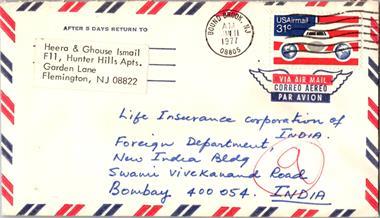 AFTER 5 DAYS RETURN TO
Heera & Ghouse Ismail
F11, Hunter Hills Apts.
Garden Lane
Flemington, NJ 08822
BOUND BROOK, NJ
1977
08805
USAirmail
31c
VIA AIR MAIL
CORREO AEREO
PAR AVION
Life Insurance corporation of
INDIA.
Foreign Department,
New India Bldg
Swami Vivekanand Road
Bombay 400 054. INDIA